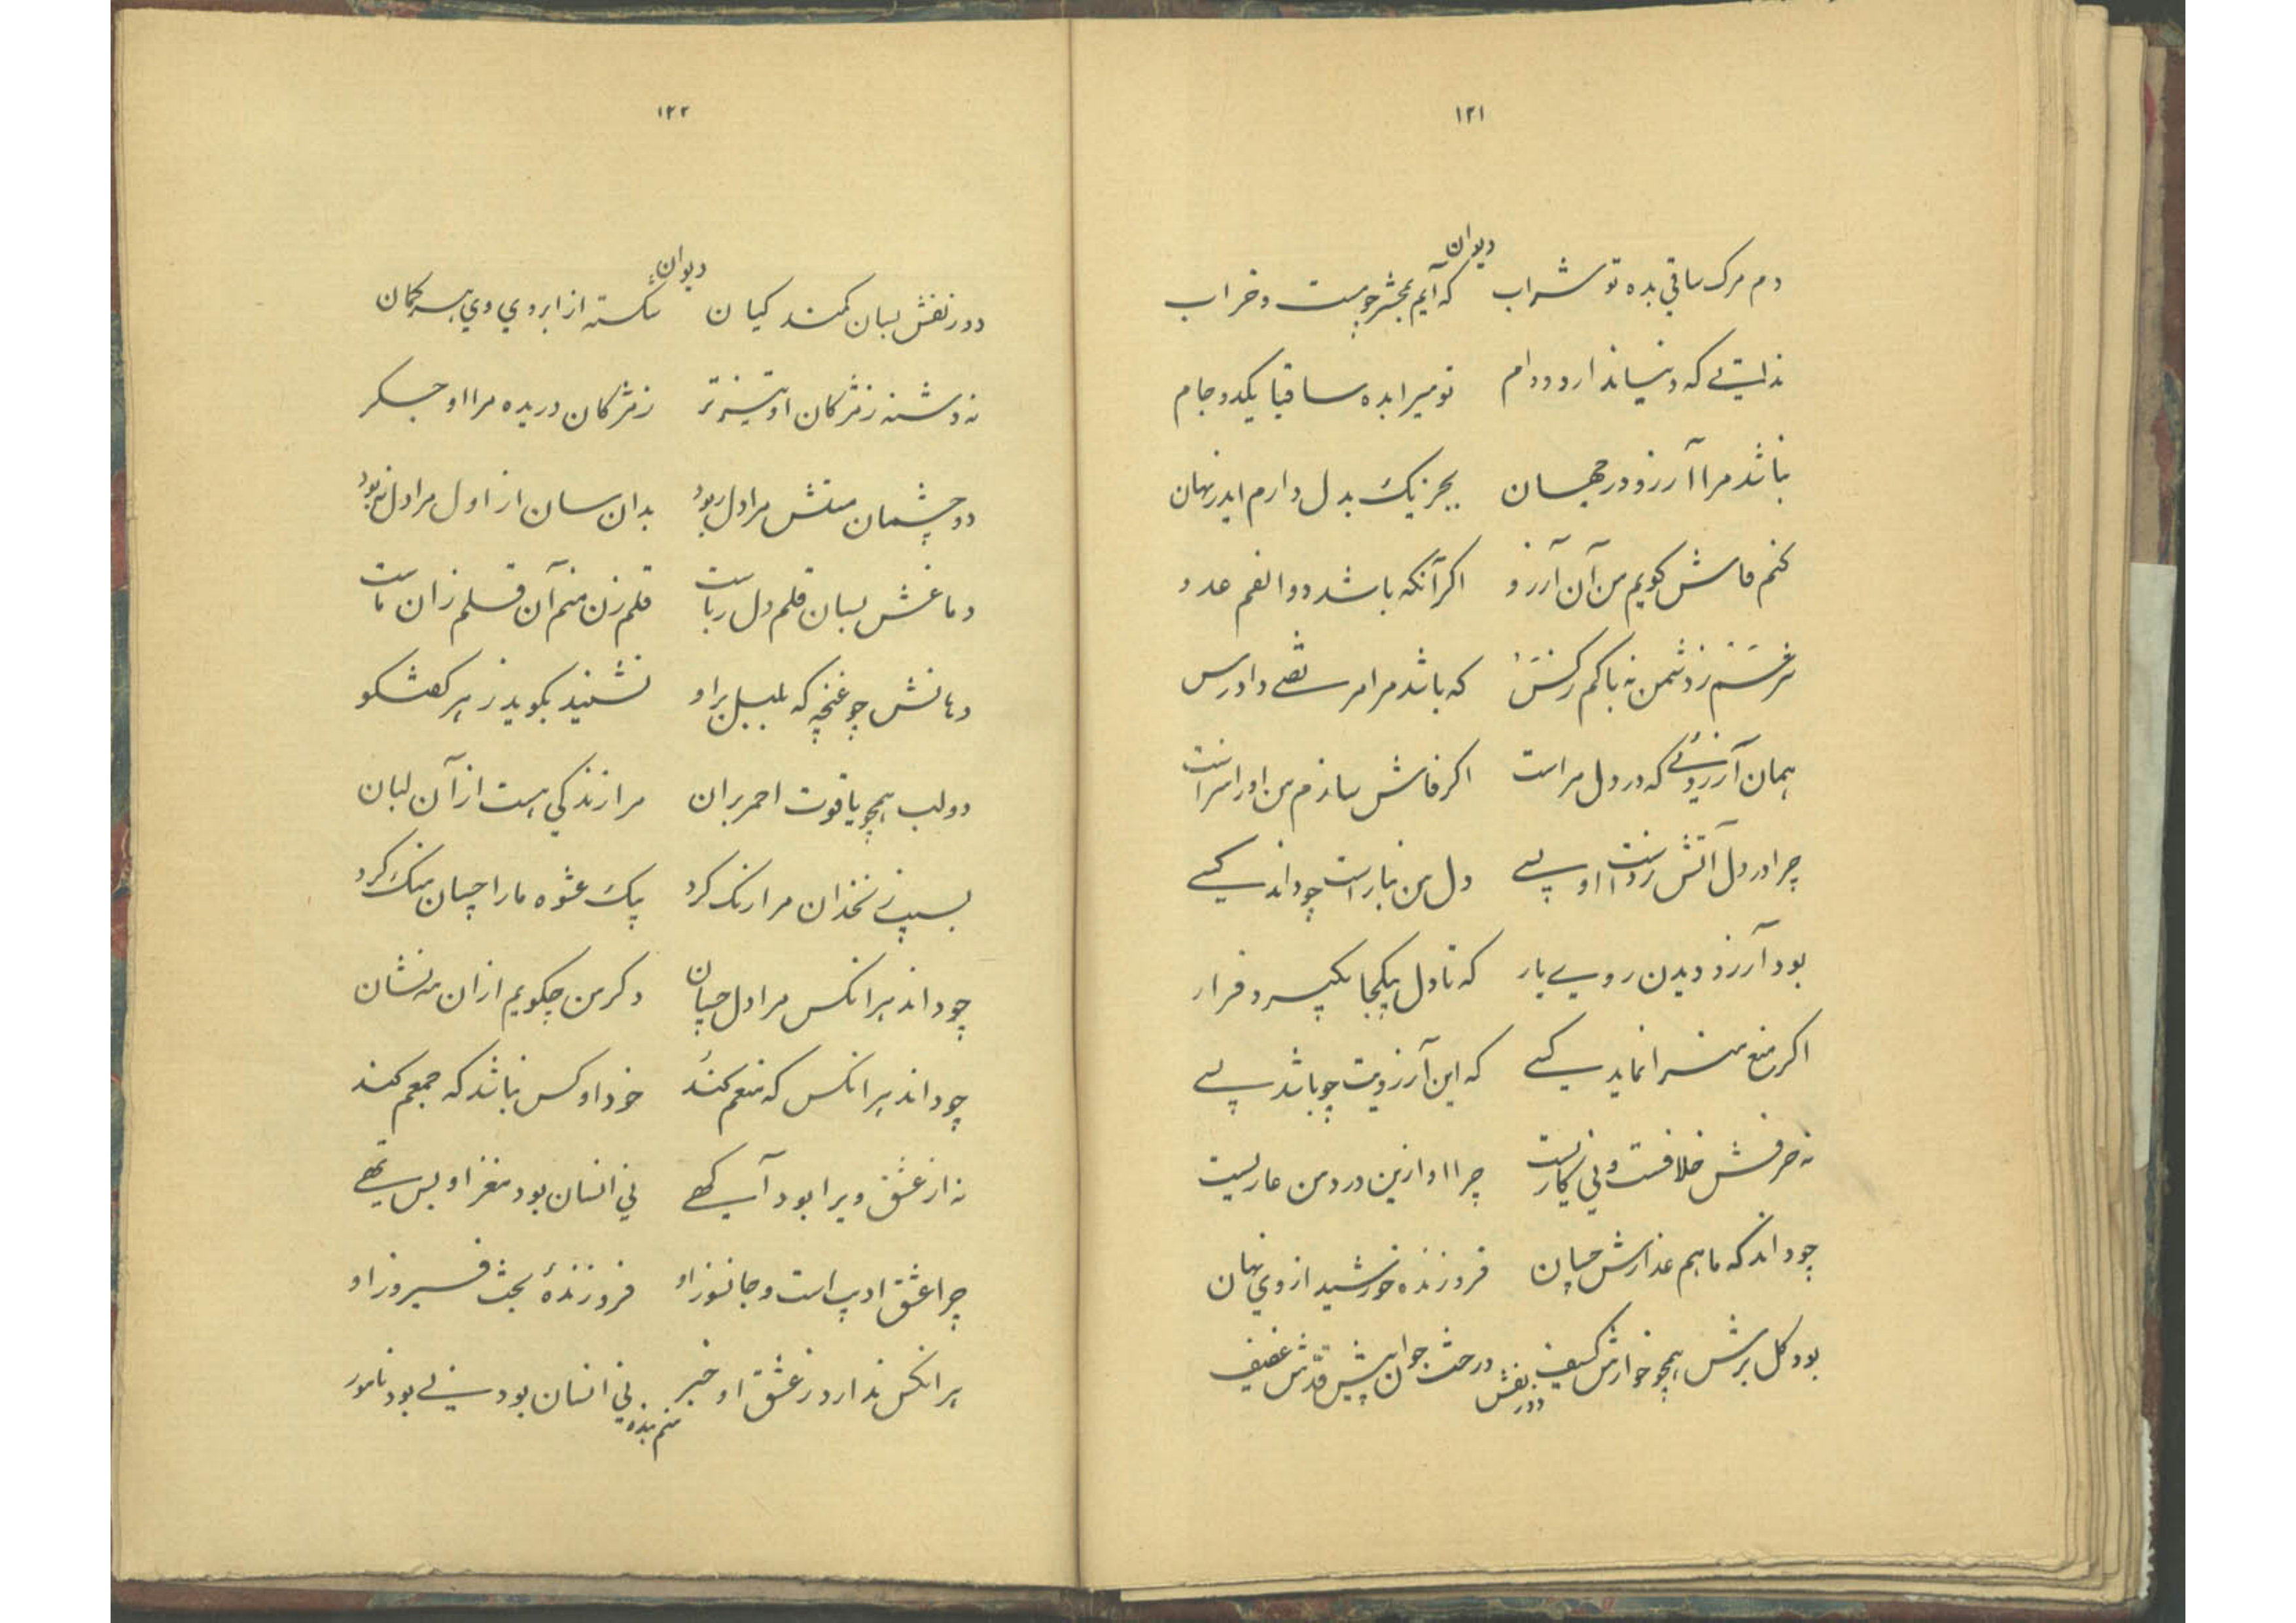 ۱۲۱
دیوان
دم مرک ساقی بده تو شراب که آیم بمحشر چو مست و خراب
ندانستی که دنیا ندارد دوام تو میرا بده ساقیا یکدو جام
نباشد مرا آرزو در جهان بجز یک بدل دارم ایدر نهان
کنم فاش کویم من آن آرزو اکر آنکه باشد دو الفم عدو
نترسم ز دشمن نه باکم ز کس که باشد مرا مرتضی دادرس
همان آرزوئی که در دل مراست اکر فاش سازم من او را سزاست
چرا در دل آتش زدست او بسی دل من نیاراست چو داند کسی
بود آرزو دیدن روی یار که تا دل بیکجا بکیرد قرار
اکر منع منرا نماید کسی که این آرزویت چو باشد بسی
نه حرفش خلافست و بی کار نیست چرا او ازین درد من عار نیست
چو داند که ماهم عذارش چپان فروزنده خورشید از وی نهان
بود کل برش همچو خوارش کسیف درخت جوان پیش قدش ضعیف
دو زلفش
۱۲۲
دیوان
دو زلفش بسان کمند کیان شکسته از ابروی وی هر کمان
نه دشنه ز مژکان او تیزتر ز مژکان دریده مرا او جکر
دو چشمان مستش مرا دل ربود بدان سان از اول مرا دل نبود
دماغش بسان قلم دل رباست قلم زن منم آن قلم زان ماست
دهانش چو غنچه که بلبل براو نشیند بکوید ز هر کفتکو
دو لب همچو یاقوت احمر بران مرا زندکی هست از آن لبان
بسیب زنخدان مرا رنک کرد بیک عشوه ما را چپان منک کرد
چو داند هر انکس مرا دل چپان دکر من چکویم ازان مه نشان
چو داند هر انکس که منعم کند خود او کس نباشد که جمعم کند
نه از عشق ویرا بود آکهی نی انسان بود مغز او بس تهی
چرا عشق ادیب است و جانسوز او فروزندهٔ بخت فیروز او
هر انکس ندارد ز عشق او خبر نی انسان بود نی بود نامور
منم بنده